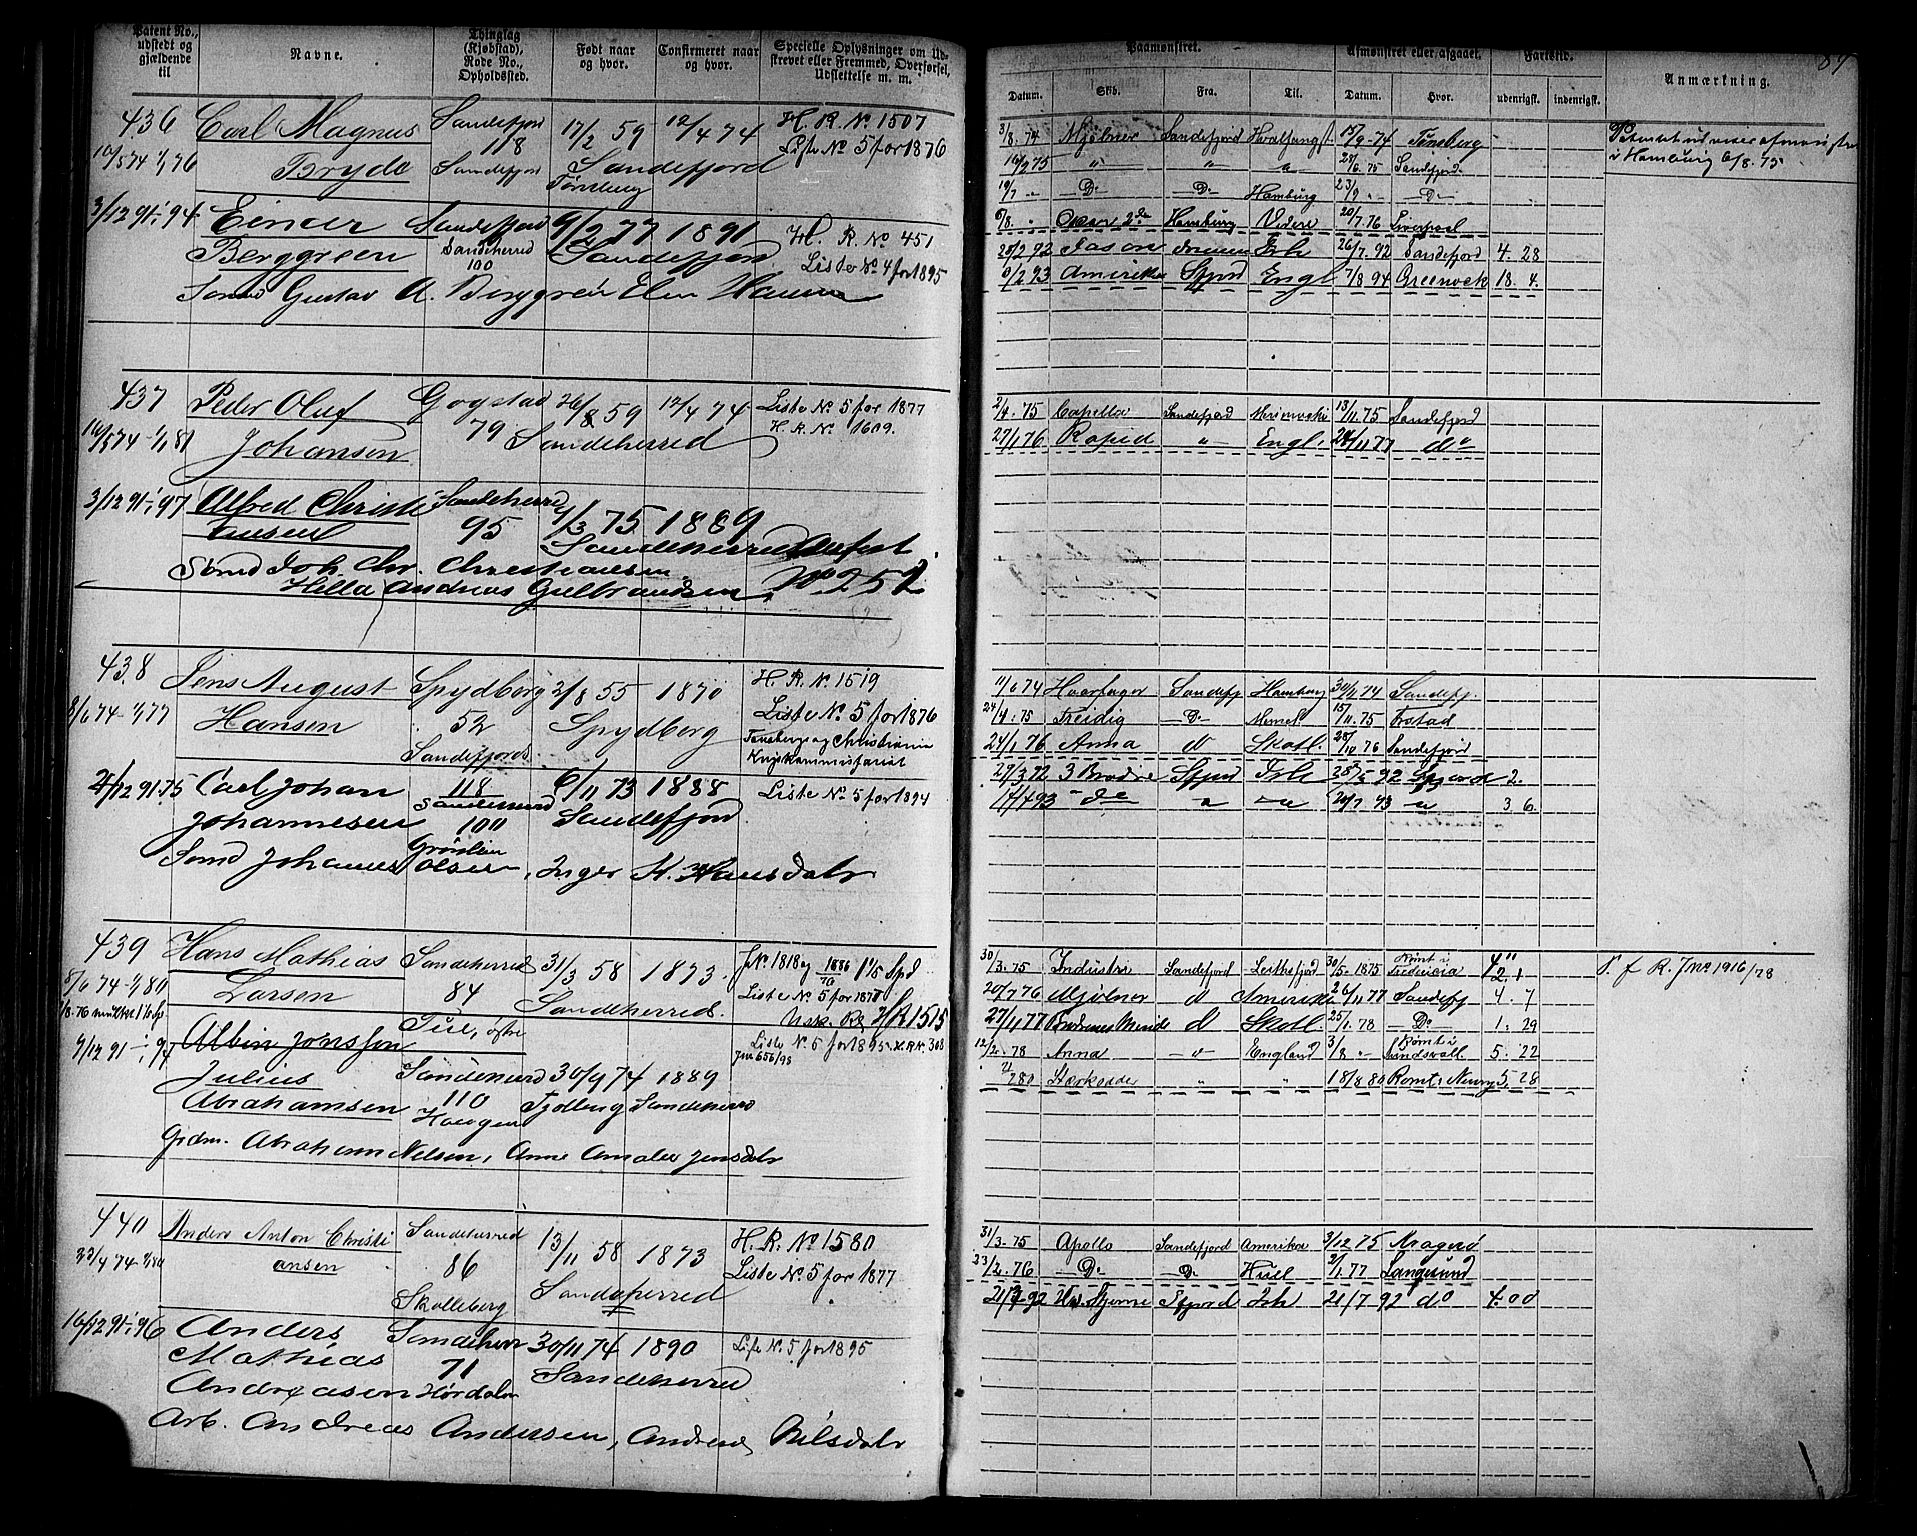 Patent No., udstedt og gjældende til
Navne.
Thinglag (Kjøbstad), Rode No., Opholdssted.
Født naar og hvor.
Confirmeret naar og hvor.
Specielle Oplysninger om Udskrevet eller Fremmed, Overførsel, Udslettelse m. m.
Paamønstret.
Afmønstret eller afgaaet.
Fartstid.
Anmærkning.
Datum. Skib. Fra. Til. Datum. Hvor. udenrigsk. indenrigsk.
436 Carl Magnus Sandefjord 17/2 59 12/4 74 H. R. No 1507
118 Liste No 5 for 1876
10/5 74 1/1 76 Bryde Sandefjord Sandefjord
Tønsberg
3/12 91 - 94 Einar Sandefjord 9/2 77 1891 H. R. No 451
Berggreen Sandeherred 100 Sandefjord Liste No 4 for 1895
Sømd Gustav A. Berggren Elen Hansen
3/8. 74 Mjølner Sandefjord Hvalfangst 15/9 - 74 Tønsberg
16/2 75 " " " 27/6. 75 Sandefjord
19/7 " Do Do Hamburg 23/9 " Do
6/8. " Oscar 2den Hamburg Videre 20/7 76 Liverpool
25/2 92 Jason Drammen Ish 26/7. 92 Sandefjord 4. 28
9/2 93 Amerika Sfjord Engl 7/8 94 Greenock 18. 4.
i Hamburg 6/8. 75
437 Peder Oluf Gogstad 26/8 59 12/4 74 Liste No 5 for 1877
79 H. R. No 1609.
10/5 74 - 1/1 81 Johansen Sandeherred
3/12 91 - 97 Alfred Christi Sandeherred 4/3 75 1889
ansen 95 Sandeherred
Sømd Joh Chr. Christiansen
Hella Andreas Gulbrandsen No 252
2/4. 75 Capella Sandefjord 13/11 75 Sandefjord
27/1 76 Rapid " Engl. 24/11 77 do
438 Jens August Spydberg 2/8 55 1870 H. R. No 1519
8/6 74 - 1/1 77 Hansen 52 Spydberg Liste No 5 for 1876
Sandefjords Tønsbergs og Christiania
Krigskommissariat
2/12 91 - 75 Carl Johan 118 6/11 73 1888 Liste No 5 for 1894
Johannesen Sandeherred 100 Sandefjord
Sømd Johannes Olsen, Inger M. Hansdatr
11/6 74 Haarfager Sandefj. Hamburg 30/11 74 Sandefj.
24/4. 75 Freidig Do Memel 15/11. 75
24/1 76 Anna do Skotl. 28/10 76 Sandefjord
29/3 92 3 Brødre Sfjord Ish 25/5 92 Sfjord 2.
17/4 93 do " " 20/7 93 " 3 6.
439 Hans Mathias Sandeherred 31/3 58 1873 J No 1818
8/6 74 - 1/1 80 Larsen 84 Sandeherred. Liste No 5 for 1877
HR 1515
9/12 91 - 97 Albin Jonsson Liste No 5 for 1895
Julius Sandeherred 30/9 74 1889
Abrahamsen 110 Haugen Sandeherred
Grdm. Abraham Nelsen, Anne Amalie Jensdatr
30/3. 75 Industri Sandefjord Leithsfjord 30/5. 1875 Rømt i Fredericia
20/7 76 Mjølner do Amerika 26/11 77 Sandefj 4. 7
27/11 77 Brødrenes Minde do Skotl. 25/1. 78 Do 1. 29
12/2. 78 Anna do England 3/8 " Rømt i Sundsvall 5. 22
" " 18/8 80 Rømt i Newry 5. 28
P. f R. J no 1916/78
440 Anders Anton Christi Sandeherred 13/11 58 1873 H. R. No 1580
ansen 86 Sandeherred Liste No 5 for 1877
Skolleberg
16/12 91 - 96 Anders Sandeherr 30/11 74 1890 Liste No 5 for 1895
Mathias 71 Sandeherred
Andreasen
Arb. Andreas Andersen, Andrea Nilsdatr
31/3. 75 Apollo Sandefjord Amerika 3/12 75 Kragerø
23/2. 76 Do Do Hull 2/1. 77 Langesund
21/3 92 Hv. Bjørne Sfjord Ish 21/7 92 do 4. 00